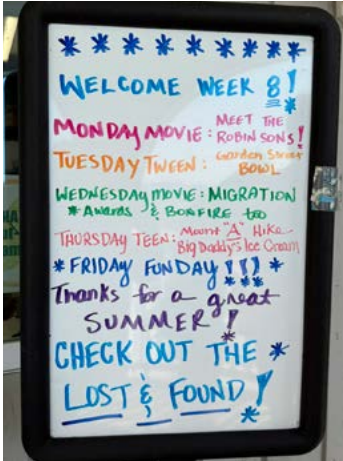 * * * * * * * * *
WELCOME WEEK 8!
MONDAY MOVIE: MEET THE ROBINSONS!
TUESDAY TWEEN: Garden Street BOWL
WEDNESDAY MOVIE: MIGRATION
* Awards & BONFIRE too
THURSDAY TEEN: Mount "A" Hike
Big Daddy's Ice Cream
* FRIDAY FUNDAY!!! *
Thanks for a great
SUMMER!
CHECK OUT THE *
LOST & FOUND!
*